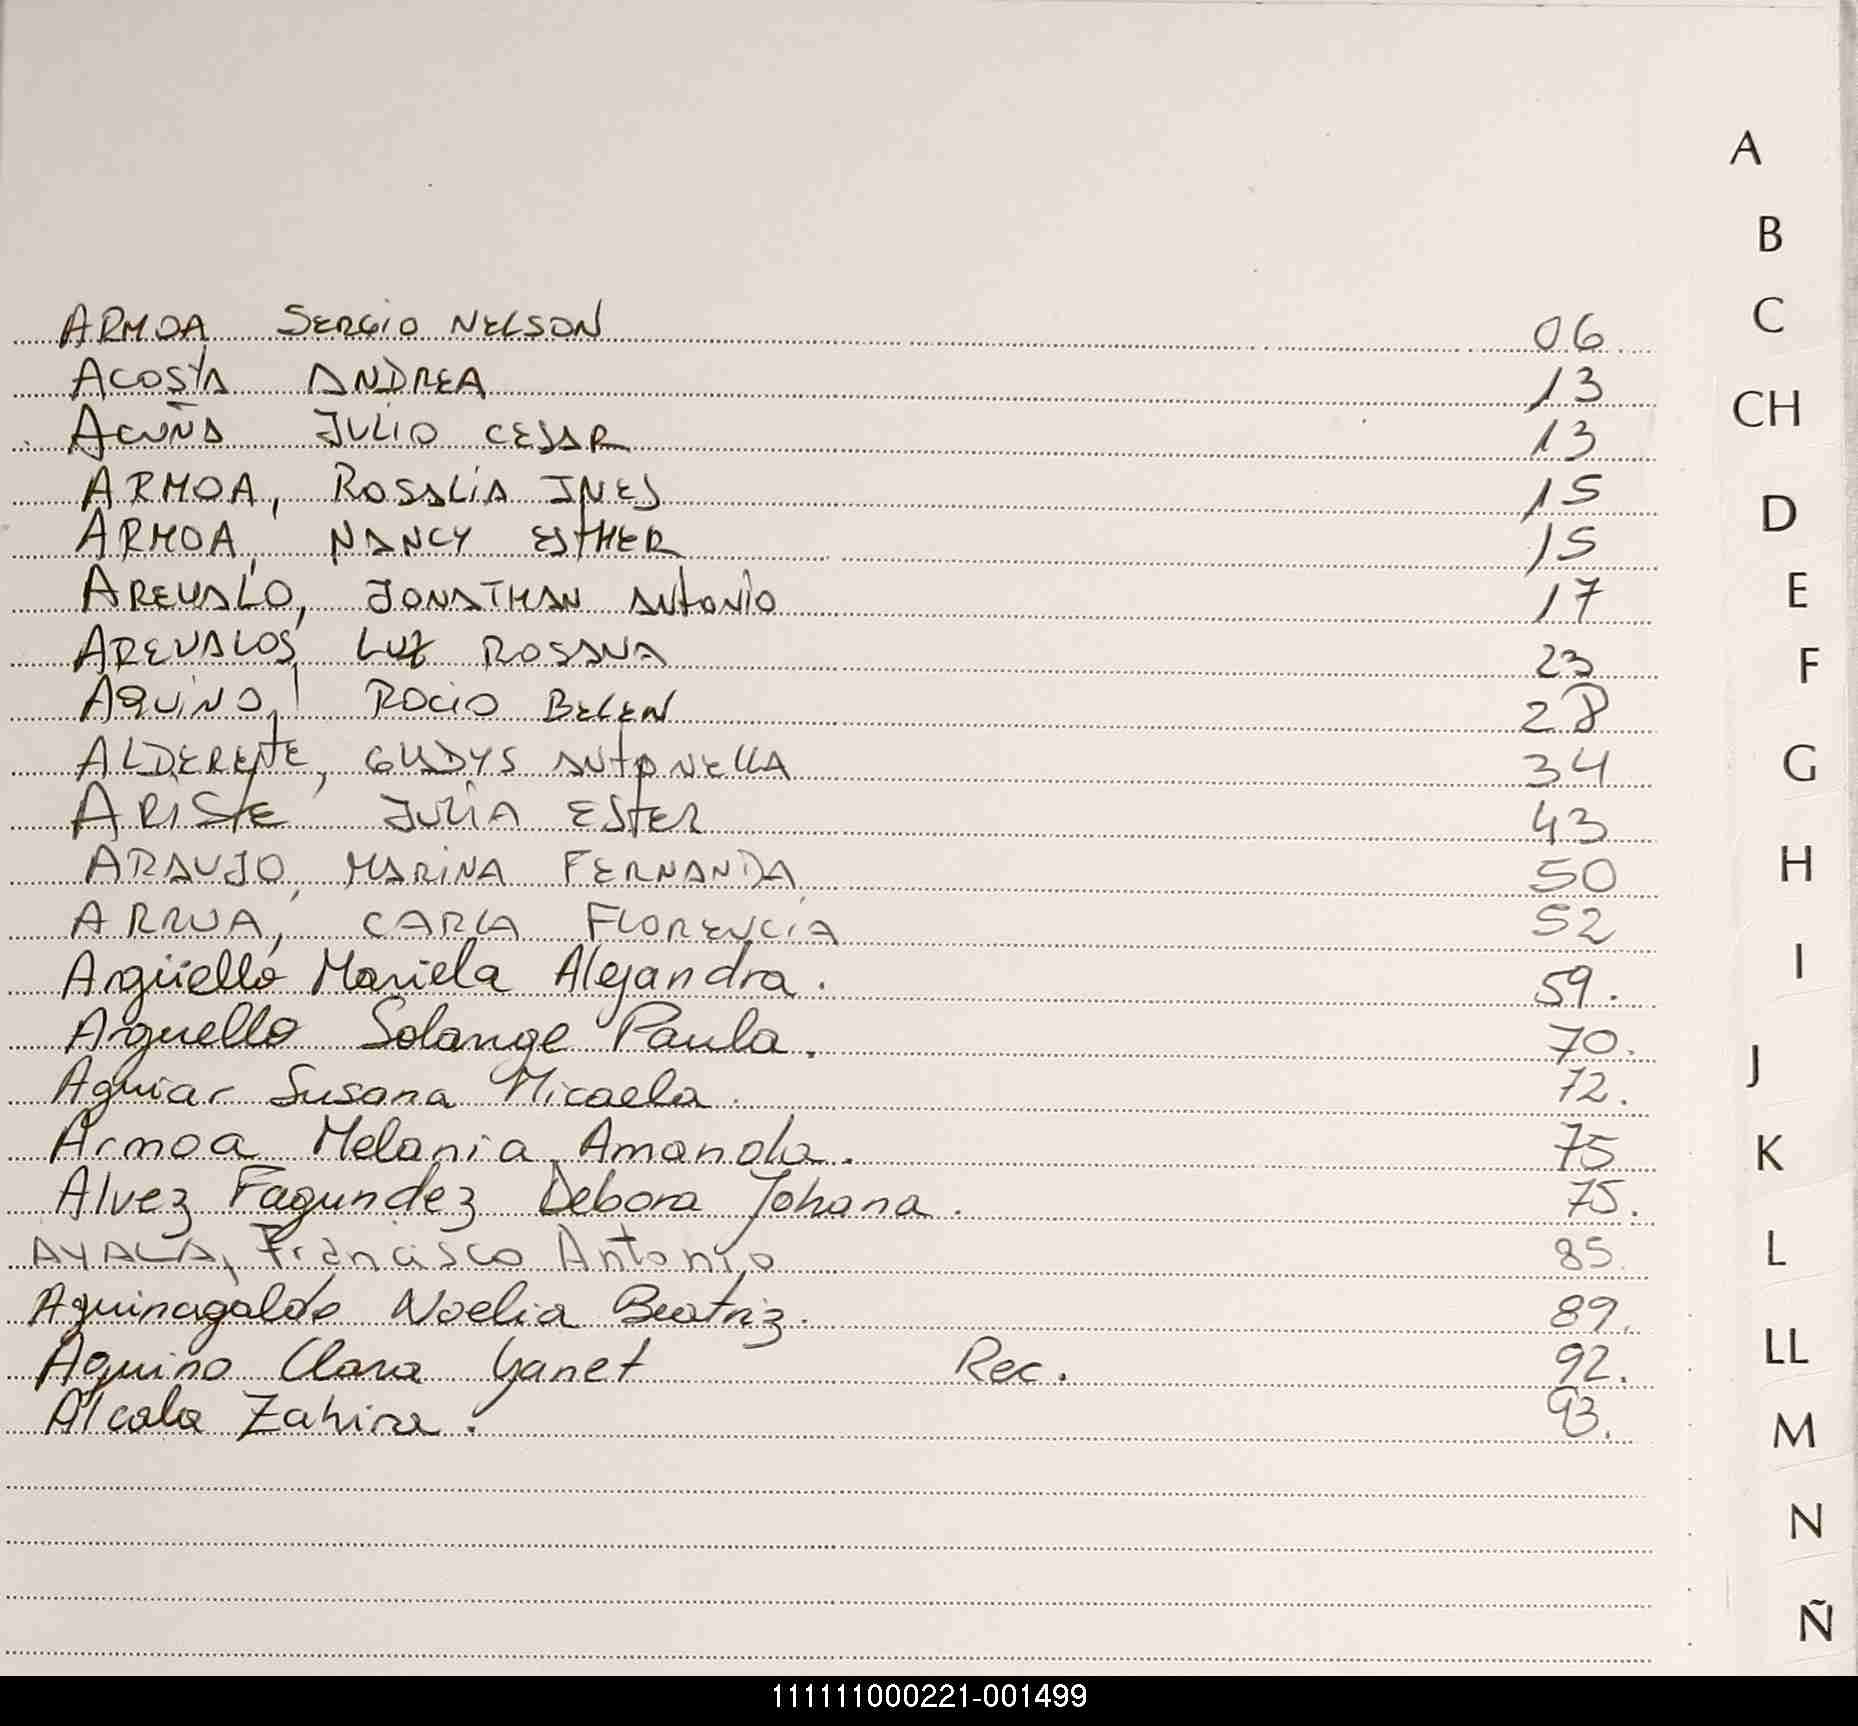 A
B
C
ARMOA SERGIO NELSON 06
ACOSTA ANDREA 13
CH
ACUÑA JULIO CESAR 13
ARMOA, ROSALIA INES 15
D
ARMOA, NANCY ESTHER 15
AREVALO, JONATHAN ANTONIO 17
E
AREVALOS, LUZ ROSANA 23
F
AQUINO, ROCIO BELEN 28
ALDERETE, GLADYS ANTONELLA 34
G
ARISTE JULIA ESTER 43
ARAUJO, MARINA FERNANDA 50
H
ARRUA, CARLA FLORENCIA 52
I
Argüello Mariela Alejandra. 59.
Arguello Solange Paula. 70.
J
Aguiar Susana Micaela. 72.
Armoa Melania Amanda. 75
K
Alvez Fagundez Debora Johana. 75.
AYALA, Francisco Antonio 85
L
Aguinagalde Noelia Beatriz. 89.
LL
Aquino Clara Yanet Rec. 92.
Alcala Zahira. 93.
M
N
Ñ
111111000221-001499